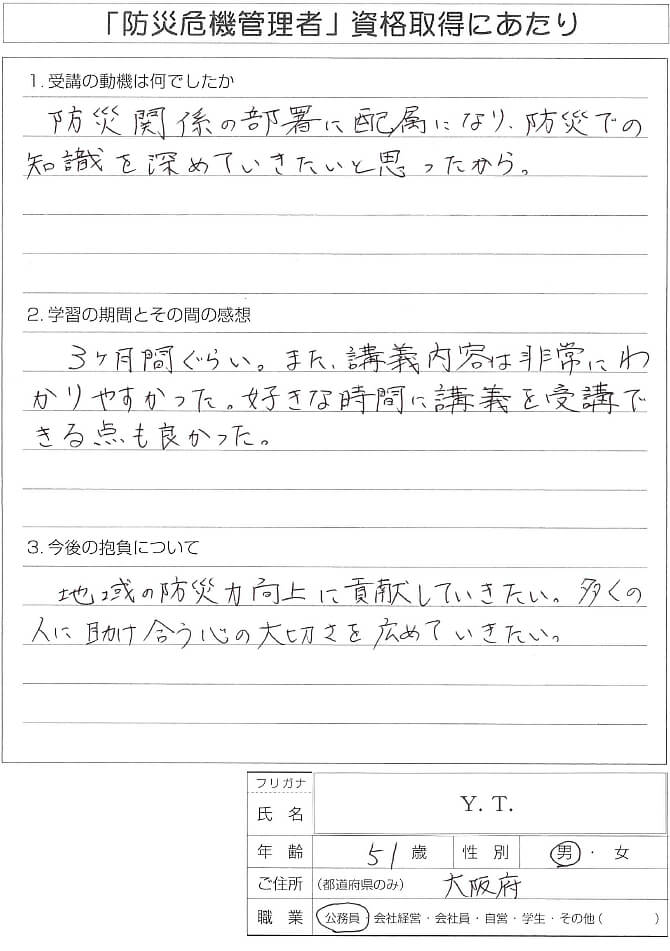 「防災危機管理者」資格取得にあたり
1. 受講の動機は何でしたか
防災関係の部署に配属になり、防災での
知識を深めていきたいと思ったから。
2. 学習の期間とその間の感想
3ヶ月間ぐらい。また、講義内容は非常にわ
かりやすかった。好きな時間に講義を受講で
きる点も良かった。
3. 今後の抱負について
地域の防災力向上に貢献していきたい。多くの
人に助け合う心の大切さを広めていきたい。
フリガナ
氏 名 Y. T.
年 齢 51歳 性 別 男・女
ご住所 (都道府県のみ) 大阪府
職 業 公務員・会社経営・会社員・自営・学生・その他( )